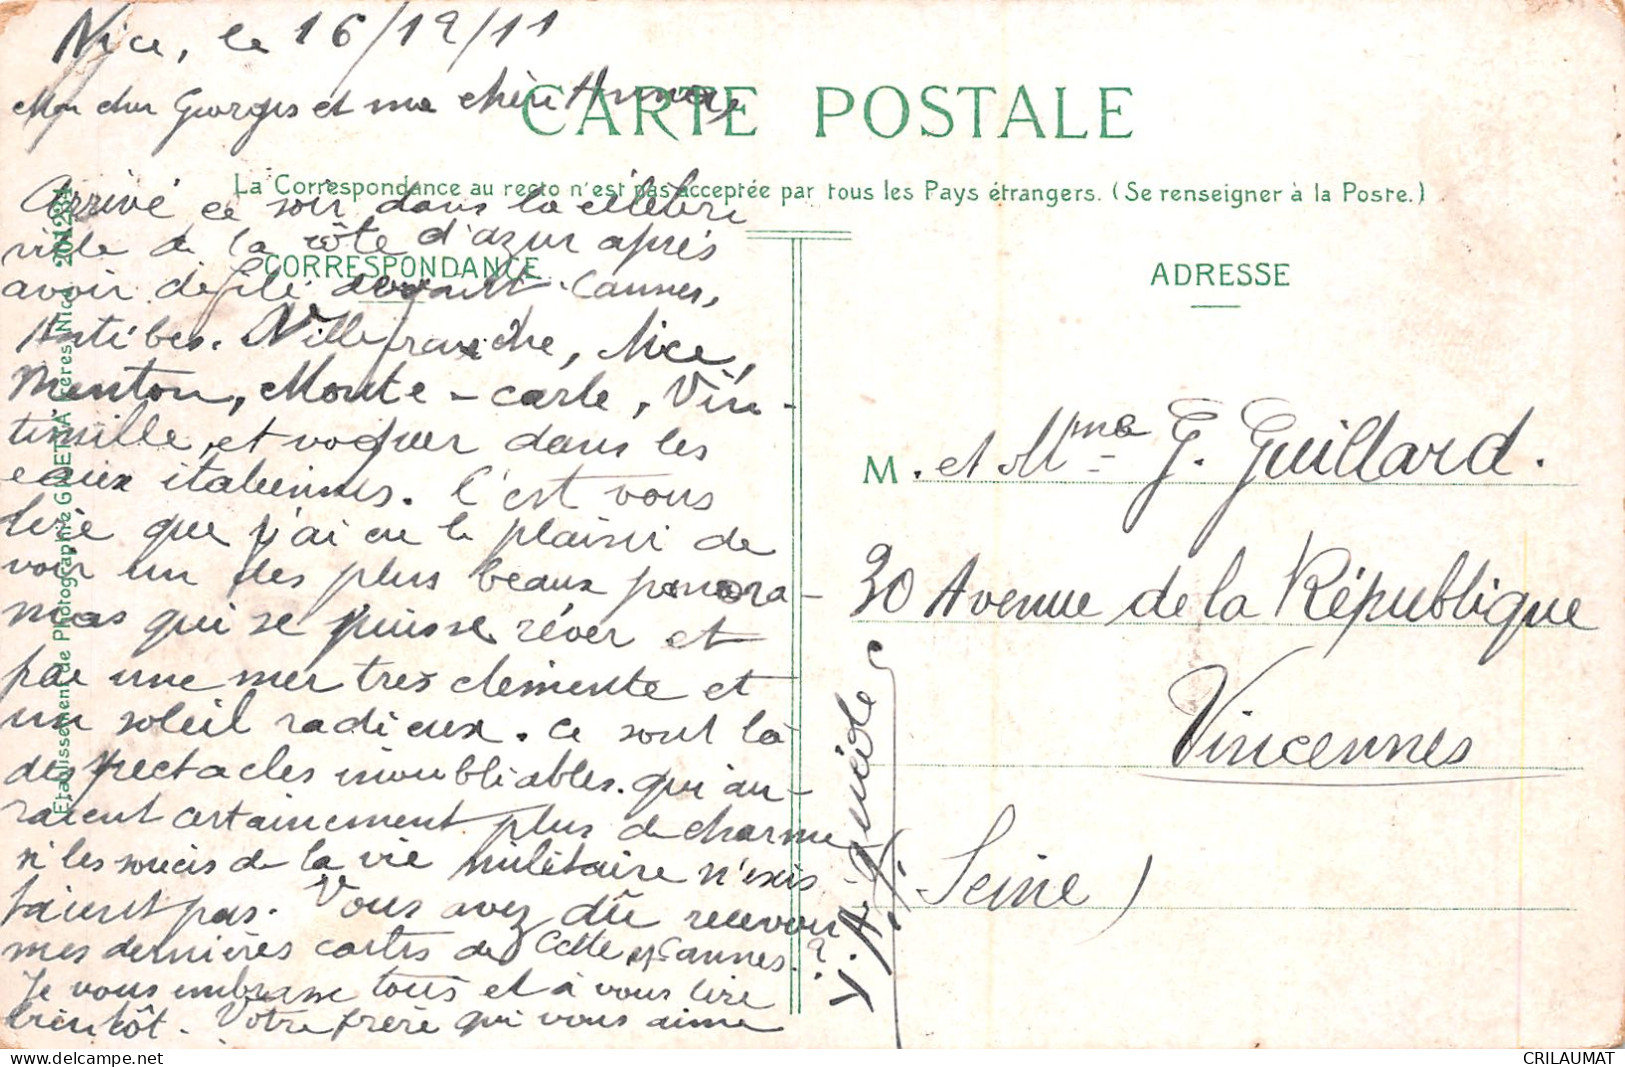 Nice, le 16/12/11
Mon cher Georges et ma chère
CARTE POSTALE
La Correspondance au recto n'est pas acceptée par tous les Pays étrangers. (Se renseigner à la Poste.)
CORRESPONDANCE
Arrivé ce soir dans la célèbre
ville de la côte d'azur après
avoir défilé devant Cannes,
Antibes. Villefranche, Nice,
Menton, Monte-carle, Vin-
timille, et voguer dans les
eaux italiennes. C'est vous
dire que j'ai eu le plaisir de
voir un des plus beaux panora-
mas qui se puisse rêver et
par une mer très clémente et
un soleil radieux. Ce sont là
des spectacles inoubliables. qui au-
raient certainement plus de charme
si les soucis de la vie militaire n'exis
taient pas. Vous avez dû recevoir
mes dernières cartes de Cette et Cannes ?
Je vous embrasse tous et à vous lire
bientôt. Votre frère qui vous aime
ADRESSE
M. et Mme G. Guillard.
30 Avenue de la République
Vincennes
(Seine)
Etablissement de Photographie GILETTA Frères, Nice 201231